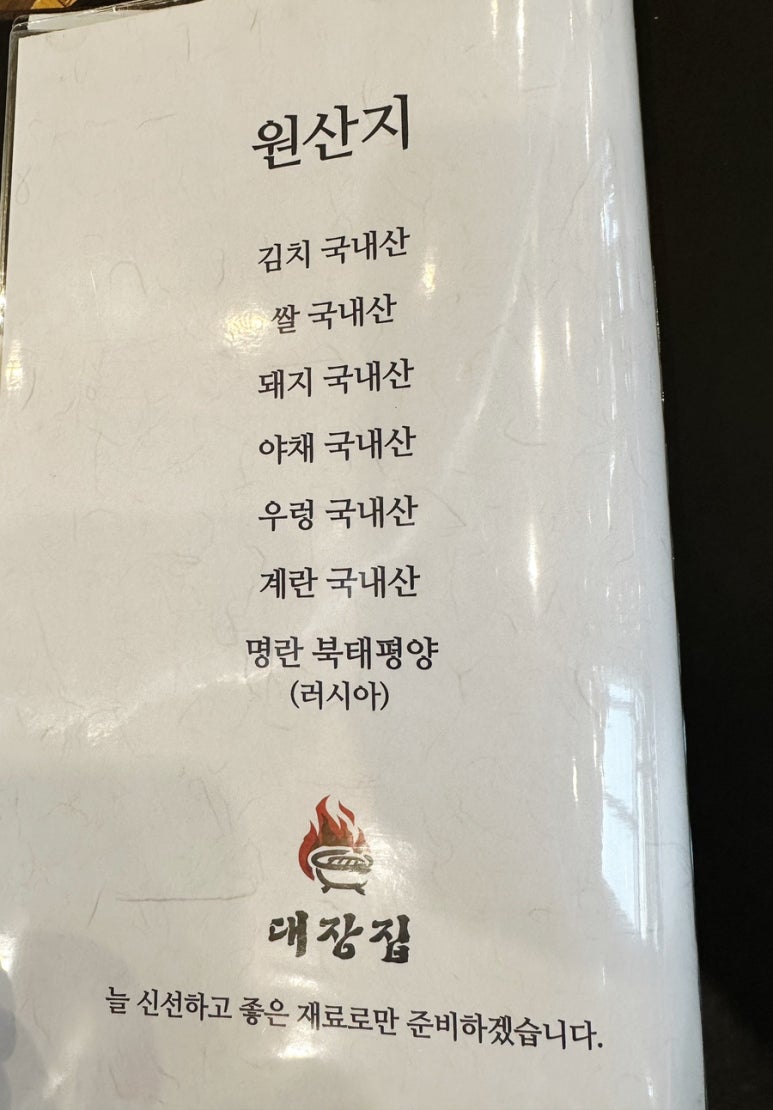 원산지
김치 국내산
쌀 국내산
돼지 국내산
야채 국내산
우렁 국내산
계란 국내산
명란 북태평양
(러시아)
대장집
늘 신선하고 좋은 재료로만 준비하겠습니다.